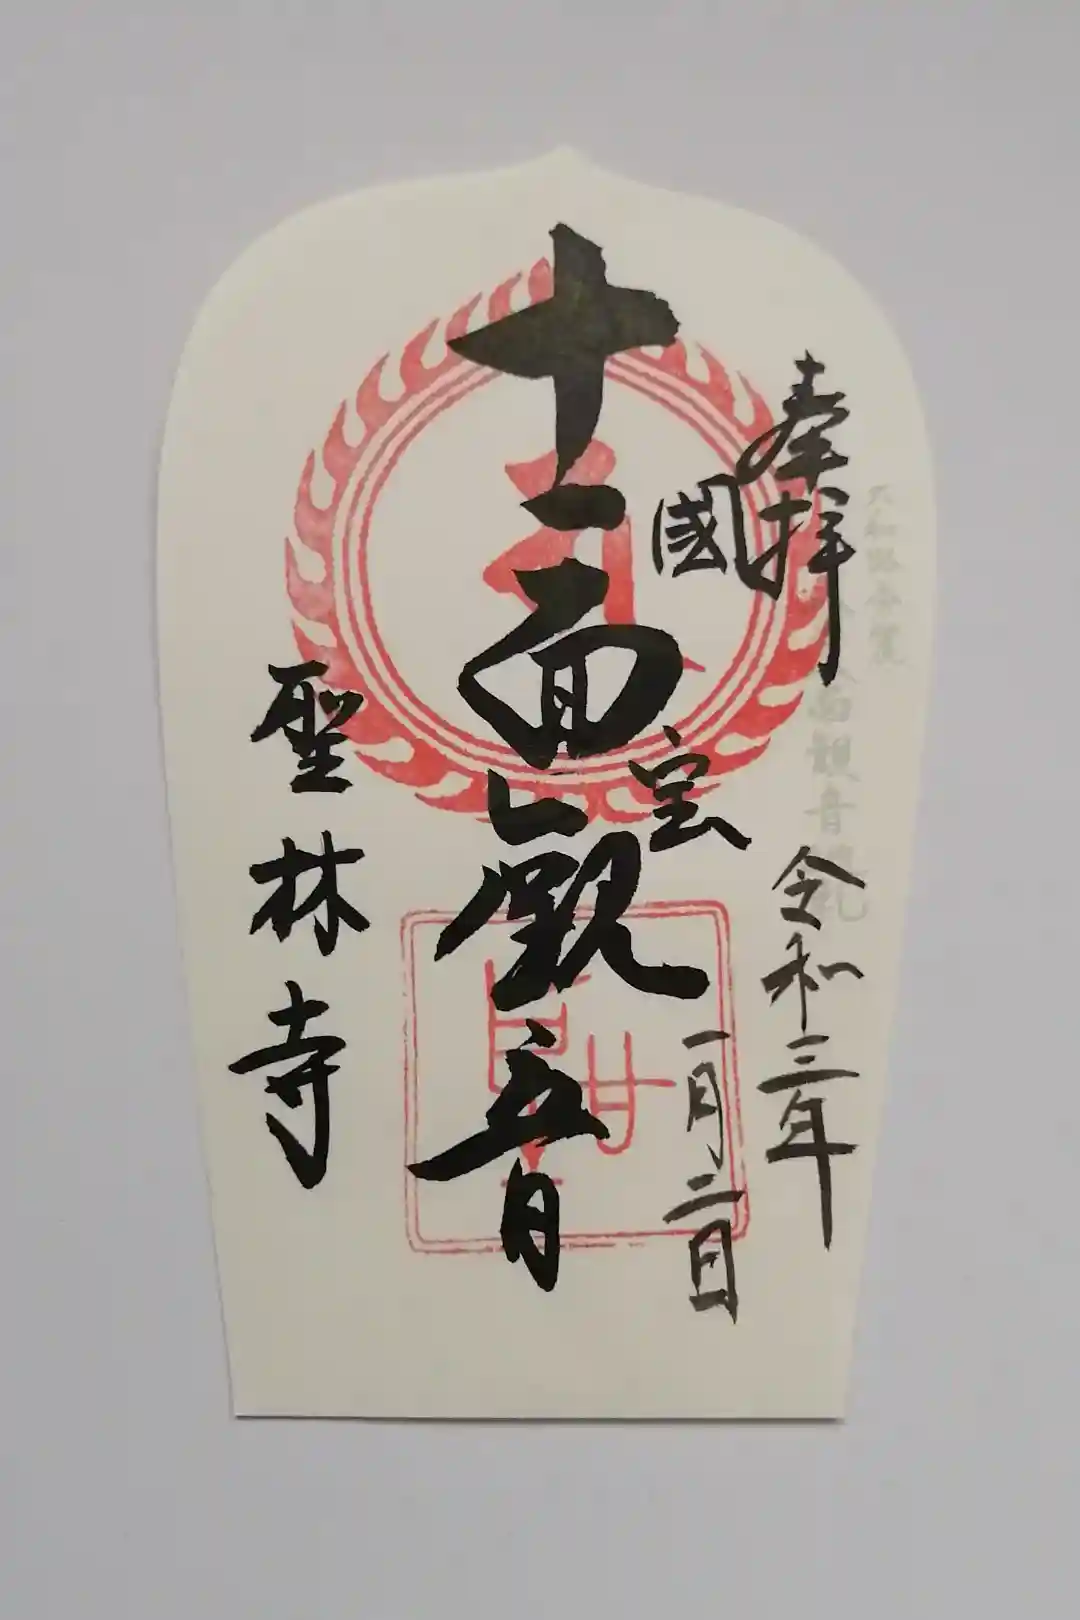 奉拝
令和三年
一月二日
國宝
十一面觀音
聖林寺